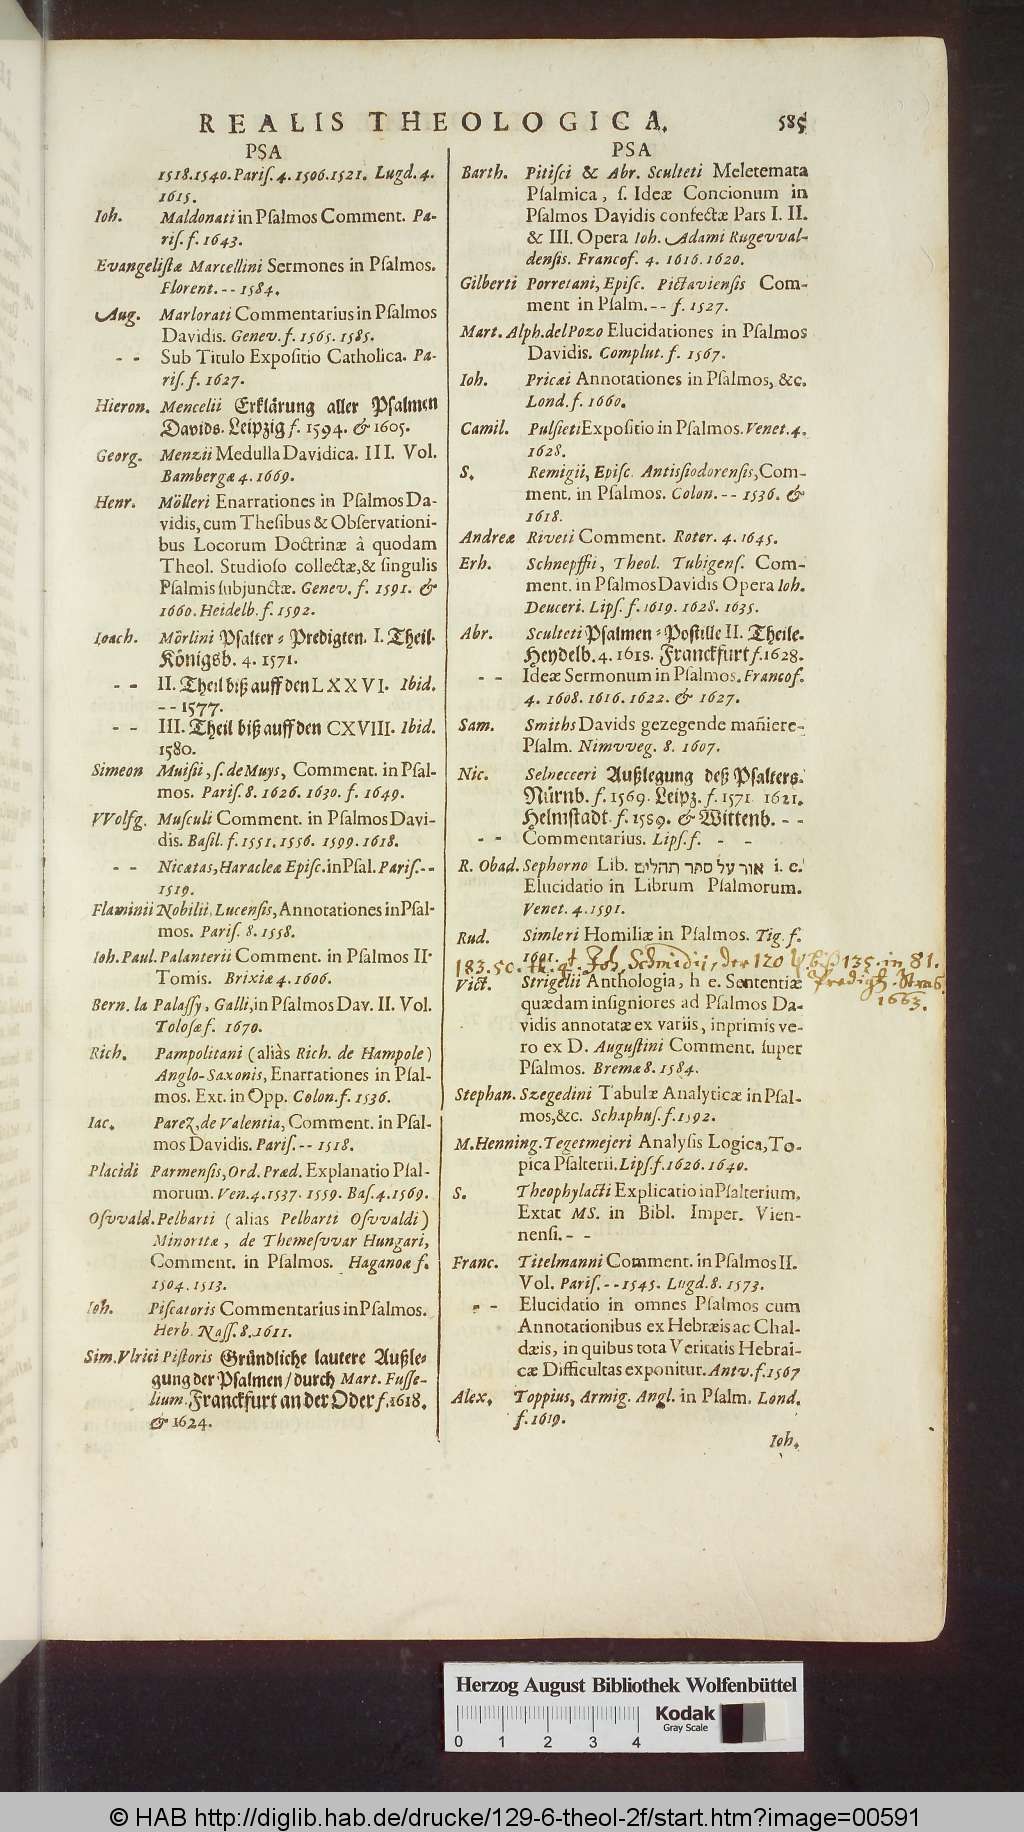 REALIS THEOLOGICA. 585
PSA
1518.1540. Pariſ. 4. 1506.1521. Lugd. 4.
1615.
Ioh. Maldonati in Pſalmos Comment. Pa-
riſ. f. 1643.
Evangeliſtæ Marcellini Sermones in Pſalmos.
Florent. -- 1584.
Aug. Marlorati Commentarius in Pſalmos
Davidis. Genev. f. 1565. 1585.
- - Sub Titulo Expoſitio Catholica. Pa-
riſ. f. 1627.
Hieron. Mencelii Erklärung aller Pſalmen
Davids. Leipzig f. 1594. & 1605.
Georg. Menzii Medulla Davidica. III. Vol.
Bambergæ 4. 1669.
Henr. Mölleri Enarrationes in Pſalmos Da-
vidis, cum Theſibus & Obſervationi-
bus Locorum Doctrinæ à quodam
Theol. Studioſo collectæ, & ſingulis
Pſalmis ſubjunctæ. Genev. f. 1591. &
1660. Heidelb. f. 1592.
Ioach. Mörlini Pſalter-Predigten. I. Theil.
Königsb. 4. 1571.
- - II. Theil biß auff den LXXVI. Ibid.
-- 1577.
- - III. Theil biß auff den CXVIII. Ibid.
1580.
Simeon Muiſii, ſ. de Muys, Comment. in Pſal-
mos. Pariſ. 8. 1626. 1630. f. 1649.
VVolfg. Muſculi Comment. in Pſalmos Davi-
dis. Baſil. f. 1551. 1556. 1599. 1618.
- - Nicætas, Haracleæ Epiſc. in Pſal. Pariſ. --
1519.
Flaminii Nobilii, Lucenſis, Annotationes in Pſal-
mos. Pariſ. 8. 1558.
Ioh. Paul. Palanterii Comment. in Pſalmos II.
Tomis. Brixiæ 4. 1606.
Bern. la Palaſſy, Galli, in Pſalmos Dav. II. Vol.
Toloſæ f. 1670.
Rich. Pampolitani (aliàs Rich. de Hampole)
Anglo-Saxonis, Enarrationes in Pſal-
mos. Ext. in Opp. Colon. f. 1536.
Iac. Parez, de Valentia, Comment. in Pſal-
mos Davidis. Pariſ. -- 1518.
Placidi Parmenſis, Ord. Præd. Explanatio Pſal-
morum. Ven. 4. 1537. 1559. Baſ. 4. 1569.
Oſvvald. Pelbarti (alias Pelbarti Oſvvaldi)
Minoritæ, de Themeſvvar Hungari,
Comment. in Pſalmos. Haganoæ f.
1504. 1513.
Ioh. Piſcatoris Commentarius in Pſalmos.
Herb. Naſſ. 8. 1611.
Sim. Vlrici Piſtoris Gründliche lautere Außle-
gung der Pſalmen / durch Mart. Fuſſe-
lium. Franckfurt an der Oder f. 1618.
& 1624.
PSA
Barth. Pitiſci & Abr. Sculteti Meletemata
Pſalmica, ſ. Ideæ Concionum in
Pſalmos Davidis confectæ Pars I. II.
& III. Opera Ioh. Adami Rugevval-
denſis. Francof. 4. 1616. 1620.
Gilberti Porretani, Epiſc. Pictavienſis Com-
ment in Pſalm. -- f. 1527.
Mart. Alph. del Pozo Elucidationes in Pſalmos
Davidis. Complut. f. 1567.
Ioh. Pricæi Annotationes in Pſalmos, &c.
Lond. f. 1660.
Camil. Pulſieti Expoſitio in Pſalmos. Venet. 4.
1628.
S. Remigii, Epiſc. Antiſſiodorenſis, Com-
ment. in Pſalmos. Colon. -- 1536. &
1618.
Andreæ Riveti Comment. Roter. 4. 1645.
Erh. Schnepffii, Theol. Tubigenſ. Com-
ment. in Pſalmos Davidis Opera Ioh.
Deuceri. Lipſ. f. 1619. 1628. 1635.
Abr. Sculteti Pſalmen-Poſtille II. Theile.
Heydelb. 4. 1618. Franckfurt f. 1628.
- - Ideæ Sermonum in Pſalmos. Francof.
4. 1608. 1616. 1622. & 1627.
Sam. Smiths Davids gezegende mañiere-
Pſalm. Nimvveg. 8. 1607.
Nic. Selnecceri Außlegung deß Pſalters.
Nürnb. f. 1569. Leipz. f. 1571 1621.
Helmſtadt. f. 1589. & Wittenb. - -
- - Commentarius. Lipſ. f. - -
R. Obad. Sephorno Lib. אור על ספר תהלים i. e.
Elucidatio in Librum Pſalmorum.
Venet. 4. 1591.
Rud. Simleri Homiliæ in Pſalmos. Tig. f.
1601.
183. 50. Joh. Schmidii, der 120 biß 135. in 81.
Predigt. Strasb.
1663.
Vict. Strigelii Anthologia, h e. Sententiæ
quædam inſigniores ad Pſalmos Da-
vidis annotatæ ex variis, inprimis ve-
ro ex D. Auguſtini Comment. ſuper
Pſalmos. Bremæ 8. 1584.
Stephan. Szegedini Tabulæ Analyticæ in Pſal-
mos, &c. Schaphuſ. f. 1592.
M. Henning. Tegetmejeri Analyſis Logica, To-
pica Pſalterii. Lipſ. f. 1626. 1640.
S. Theophylacti Explicatio in Pſalterium,
Extat MS. in Bibl. Imper. Vien-
nenſi. - -
Franc. Titelmanni Comment. in Pſalmos II.
Vol. Pariſ. -- 1545. Lugd. 8. 1573.
- - Elucidatio in omnes Pſalmos cum
Annotationibus ex Hebræis ac Chal-
dæis, in quibus tota Veritatis Hebrai-
cæ Difficultas exponitur. Antv. f. 1567
Alex. Toppius, Armig. Angl. in Pſalm. Lond.
f. 1619.
Ioh.
Herzog August Bibliothek Wolfenbüttel
Kodak
Gray Scale
0 1 2 3 4
© HAB http://diglib.hab.de/drucke/129-6-theol-2f/start.htm?image=00591